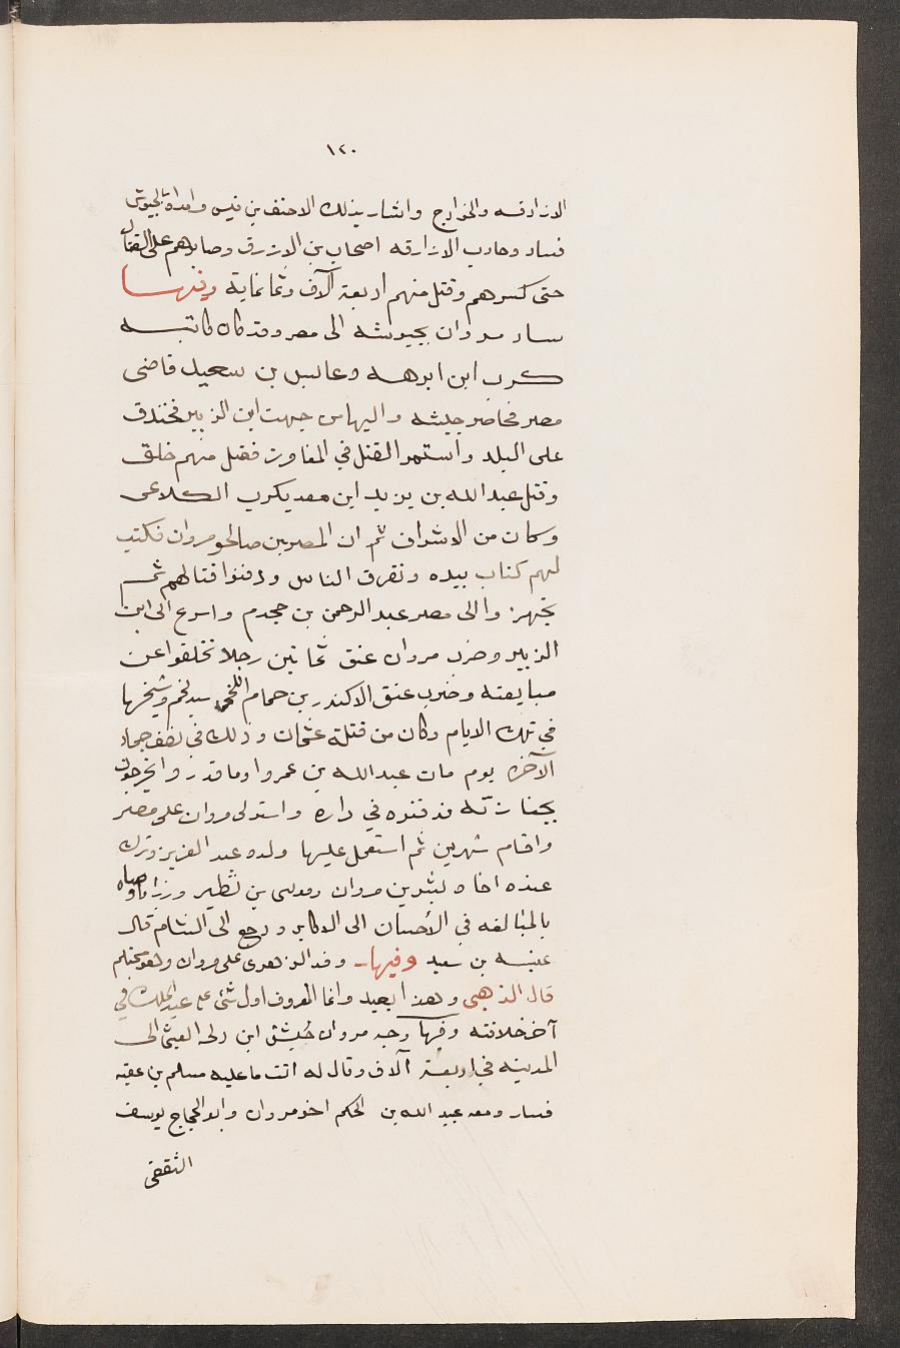 ١٢٠
الازارقه والخوارج واشار بذلك الاحنف بن قيس وامداة الجيوش
فسار وحارب الازارقه اصحاب بن الازرق وصابرهم على القتال
حتى كسرهم وقتل منهم اربعة آلاف وثمانماية وفيها
سار مروان بجيوشه الى مصر وقد كان كاتبه
كرب ابن ابرهه وعابس بن سعيد قاضى
مصر فحاصر جيشه واليها من جهت ابن الزبير فخندق
على البلد واستمر القتل في المعاون فقتل منهم خلق
وقتل عبد الله بن يزيد ابن معديكرب الكلاعى
وكان من الاشراف ثم ان المصرين صالحو مروان فكتب
لهم كتاب بيده وتفرق الناس ودفنوا قتالهم ثم
تجهز والى مصر عبد الرحمن بن جحدم واسرع الى ابن
الزبير وضرب مروان عنق ثمانين رجلا تخلقوا عن
مبايعته وضرب عنق الاكندر بن حمام اللخمى سيد لخم وشيخها
في تلك الايام وكان من قتلة عثمان وذلك في نصف جماد
الآخره يوم مات عبد الله بن عمرو وما قدروا يخرجون
بجنازته فدفنوه في داره واستولى مروان على مصر
واقام شهرين ثم استعمل عليها ولده عبد العزيز وترك
عنده اخاه بشر بن مروان وموسى بن نظير وزيرا واوصاه
بالمبالغه في الأحسان الى الاكابر ورجع الى الشام قال
عنبسه بن سعيد وفيها وفد الزهرى على مروان وهو محتلم
قال الذهبى وهذا بعيد وانما المعروف اول شئ على عبد الملك في
آخر خلافته وفيها وجه مروان حبيش ابن دلجه القينى الى
المدينه في اربعة آلاف وقال له انت ما عليه مسلم بن عقبه
فسار ومعه عبيد الله بن الحكم اخو مروان وابو الحجاج يوسف
الثقفى